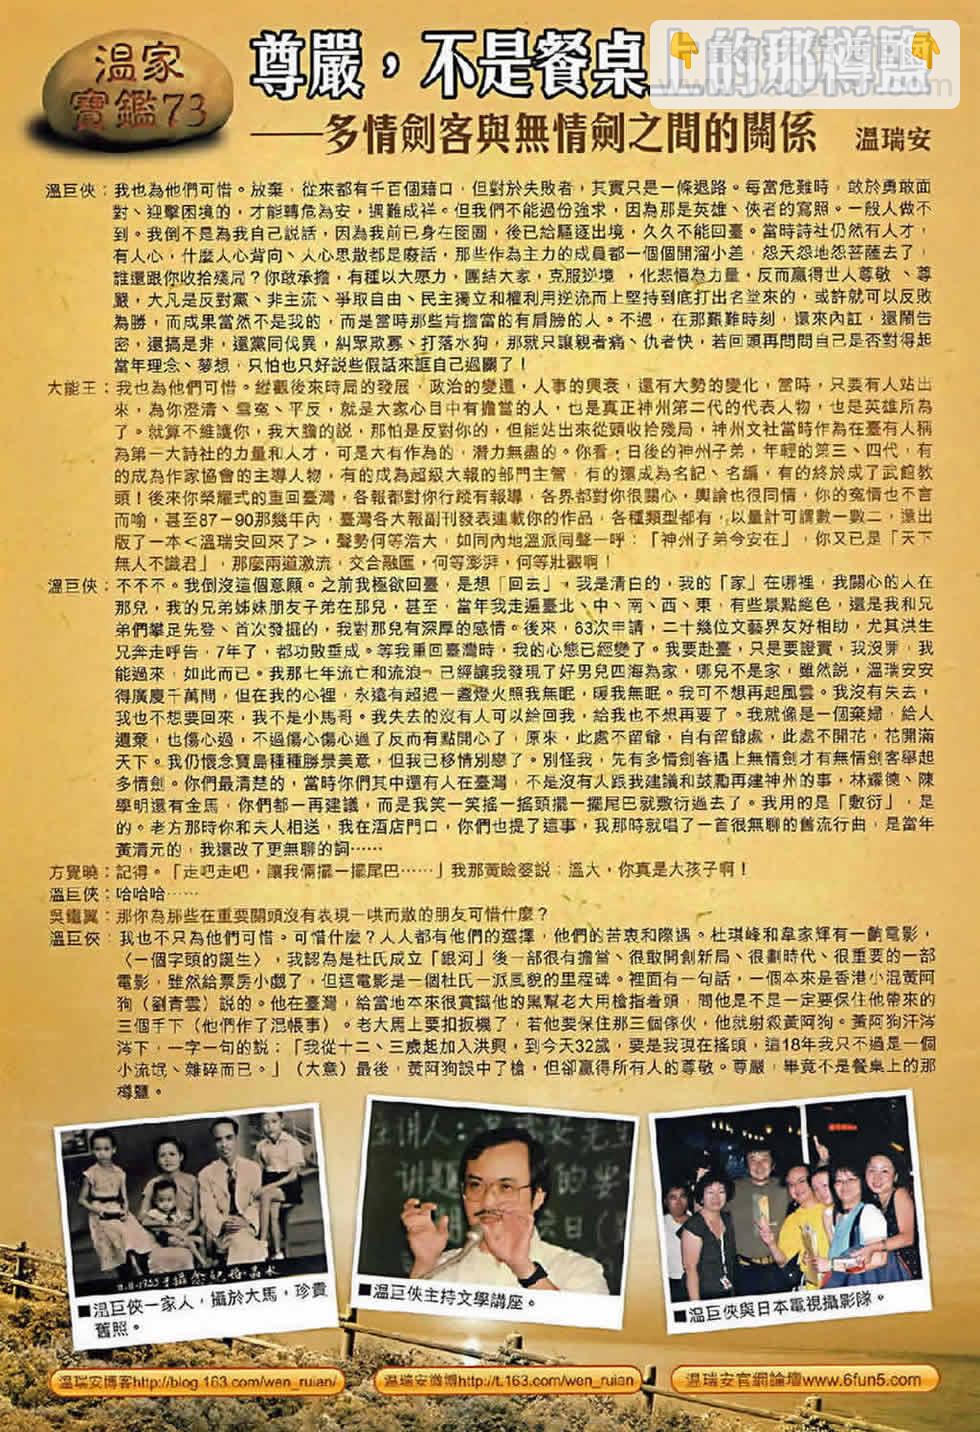 溫家
寶鑑73
尊嚴，不是餐桌上的那樽鹽
——多情劍客與無情劍之間的關係 溫瑞安
溫巨俠：我也為他們可惜。放棄，從來都有千百個藉口，但對於失敗者，其實只是一條退路。每當危難時，敢於勇敢面
對、迎擊困境的，才能轉危為安，遇難成祥。但我們不能過份強求，因為那是英雄、俠者的寫照。一般人做不
到。我倒不是為我自己說話，因為我前已身在囹圄，後已給驅逐出境，久久不能回臺。當時詩社仍然有人才，
有人心，什麼人心背向、人心思散都是廢話，那些作為主力的成員都一個個開溜小差，怨天怨地怨菩薩去了，
誰還跟你收拾殘局？你敢承擔，有種以大愿力，團結大家，克服逆境，化悲憤為力量，反而贏得世人尊敬、尊
嚴，大凡是反對黨、非主流、爭取自由、民主獨立和權利用逆流而上堅持到底打出名堂來的，或許就可以反敗
為勝，而成果當然不是我的，而是當時那些肯擔當的有肩膀的人。不過，在那艱難時刻，還來內訌，還鬧告
密，還搞是非，還黨同伐異，糾眾欺寡、打落水狗，那就只讓親者痛、仇者快，若回頭再問問自己是否對得起
當年理念、夢想，只怕也只好說些假話來誆自己過關了！
大能王：我也為他們可惜。縱觀後來時局的發展，政治的變遷，人事的興衰，還有大勢的變化，當時，只要有人站出
來，為你澄清、雪冤、平反，就是大家心目中有擔當的人，也是真正神州第二代的代表人物，也是英雄所為
了。就算不維護你，我大膽的說，那怕是反對你的，但能站出來從頭收拾殘局，神州文社當時作為在臺有人稱
為第一大詩社的力量和人才，可是大有作為的，潛力無盡的。你看，日後的神州子弟，年輕的第三、四代，有
的成為作家協會的主導人物，有的成為超級大報的部門主管，有的還成為名記、名編，有的終於成了武館教
頭！後來你榮耀式的重回臺灣，各報都對你行蹤有報導，各界都對你很關心，輿論也很同情，你的冤情也不言
而喻，甚至87－90那幾年內，臺灣各大報副刊發表連載你的作品，各種類型都有，以量計可謂數一數二，還出
版了一本<溫瑞安回來了>，聲勢何等浩大，如同內地溫派同聲一呼：「神州子弟今安在」，你又已是「天下
無人不識君」，那麼兩道激流，交合融匯，何等澎湃，何等壯觀啊！
溫巨俠：不不不。我倒沒這個意願。之前我極欲回臺，是想「回去」，我是清白的，我的「家」在哪裡，我關心的人在
那兒，我的兄弟姊妹朋友子弟在那兒，甚至，當年我走遍臺北、中、南、西、東，有些景點絕色，還是我和兄
弟們攀足先登、首次發掘的，我對那兒有深厚的感情。後來，63次申請，二十幾位文藝界友好相助，尤其洪生
兄奔走呼告，7年了，都功敗垂成。等我重回臺灣時，我的心態已經變了。我要赴臺，只是要證實，我沒罪，我
能過來，如此而已。我那七年流亡和流浪，已經讓我發現了好男兒四海為家，哪兒不是家，雖然說，溫瑞安安
得廣廈千萬間，但在我的心裡，永遠有超過一盞燈火照我無眠，暖我無眠。我可不想再起風雲。我沒有失去，
我也不想要回來，我不是小馬哥。我失去的沒有人可以給回我，給我也不想再要了。我就像是一個棄婦，給人
遺棄，也傷心過，不過傷心傷心過了反而有點開心了，原來，此處不留爺，自有留爺處，此處不開花，花開滿
天下。我仍懷念寶島種種勝景美意，但我已移情別戀了。別怪我，先有多情劍客遇上無情劍才有無情劍客舉起
多情劍。你們最清楚的，當時你們其中還有人在臺灣，不是沒有人跟我建議和鼓勵再建神州的事，林耀德、陳
學明還有金馬，你們都一再建議，而是我笑一笑搖一搖頭擺一擺尾巴就敷衍過去了。我用的是「敷衍」，是
的。老方那時你和夫人相送，我在酒店門口，你們也提了這事，我那時就唱了一首很無聊的舊流行曲，是當年
黃清元的，我還改了更無聊的詞……
方覺曉：記得。「走吧走吧，讓我倆擺一擺尾巴……」我那黃臉婆說：溫大，你真是大孩子啊！
溫巨俠：哈哈哈……
吳鐵翼：那你為那些在重要關頭沒有表現一哄而散的朋友可惜什麼？
溫巨俠：我也不只為他們可惜。可惜什麼？人人都有他們的選擇，他們的苦衷和際遇。杜琪峰和韋家輝有一齣電影，
〈一個字頭的誕生〉，我認為是杜氏成立「銀河」後一部很有擔當、很敢開創新局、很劃時代、很重要的一部
電影，雖然給票房小覷了，但這電影是一個杜氏一派風貌的里程碑。裡面有一句話，一個本來是香港小混黃阿
狗（劉青雲）說的。他在臺灣，給當地本來很賞識他的黑幫老大用槍指着頭，問他是不是一定要保住他帶來的
三個手下（他們作了混帳事）。老大馬上要扣扳機了，若他要保住那三個傢伙，他就射殺黃阿狗。黃阿狗汗涔
涔下，一字一句的說：「我從十二、三歲起加入洪興，到今天32歲，要是我現在搖頭，這18年我只不過是一個
小流氓、雜碎而已。」（大意）最後，黃阿狗誤中了槍，但卻贏得所有人的尊敬。尊嚴，畢竟不是餐桌上的那
樽鹽。
■溫巨俠一家人，攝於大馬，珍貴
舊照。
■溫巨俠主持文學講座。
■溫巨俠與日本電視攝影隊。
溫瑞安博客http://blog.163.com/wen_ruian/
溫瑞安微博http://t.163.com/wen_ruian
溫瑞安官網論壇www.6fun5.com